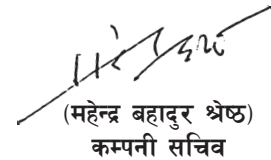 (महेन्द्र बहादुर श्रेष्ठ)
कम्पनी सचिव